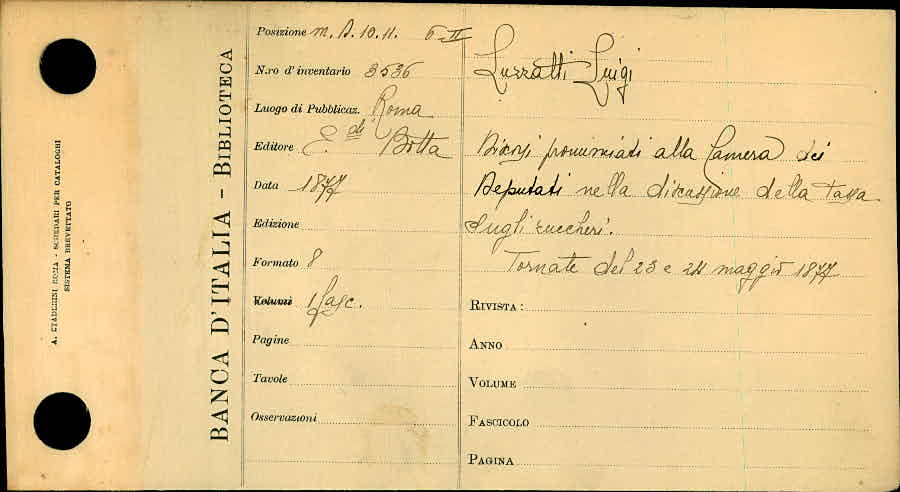 A. STADERINI ROMA - SCHEDARI PER CATALOGHI
SISTEMA BREVETTATO
BANCA D'ITALIA - BIBLIOTECA
Posizione m. A. 10. 11. 6-II
N.ro d'inventario 3536
Luogo di Pubblicaz. Roma
Editore E. di Botta
Data 1877
Edizione
Formato 8
Volumi 1 fasc.
Pagine
Tavole
Osservazioni
Luzzatti Luigi
Discorsi pronunciati alla Camera dei
Deputati nella discussione della tassa
sugli zuccheri.
Tornate del 23 e 24 maggio 1877
RIVISTA:
ANNO
VOLUME
FASCICOLO
PAGINA